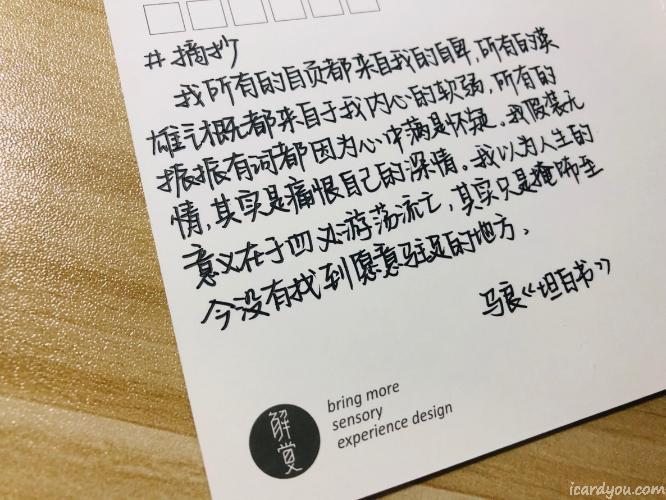 #摘抄
我所有的自负都来自我的自卑,所有的英
雄气概都来自于我内心的软弱,所有的
振振有词都因为心中满是怀疑。我假装无
情,其实是痛恨自己的深情。我以为人生的
意义在于四处游荡流亡,其实只是掩饰至
今没有找到愿意驻足的地方。
马良《坦白书》
解觉
bring more
sensory
experience design
icardyou.com